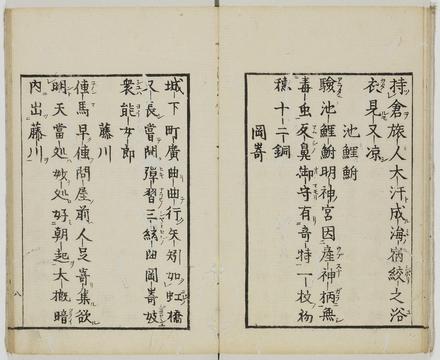 持倉旅人大汗成海宿絞之浴
衣見又凉
池鯉鮒
驗池鯉鮒明神宮因産神柄無
毒虫反鼻御守有奇特一枚物
積十二銅
岡嵜
城下町廣曲曲行矢矧如虹橋
又長嘗聞彈習三絃曲岡嵜妓
衆能女郎
藤川
傳馬早傳問屋前人足寄集欲
明天當処妓処好朝起大概暗
内出藤川
八